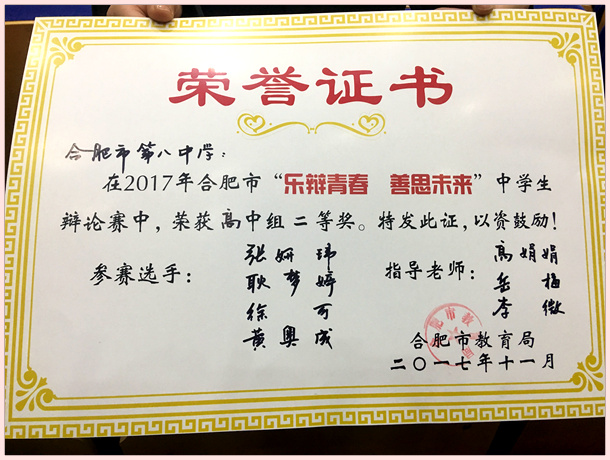 荣誉证书
合肥市第八中学：
在2017年合肥市“乐辩青春 善思未来”中学生
辩论赛中，荣获高中组二等奖。特发此证，以资鼓励！
参赛选手：张妍玮 指导老师：高娟娟
耿梦婷 岳梅
徐可 李微
黄奥成
合肥市教育局
二〇一七年十一月